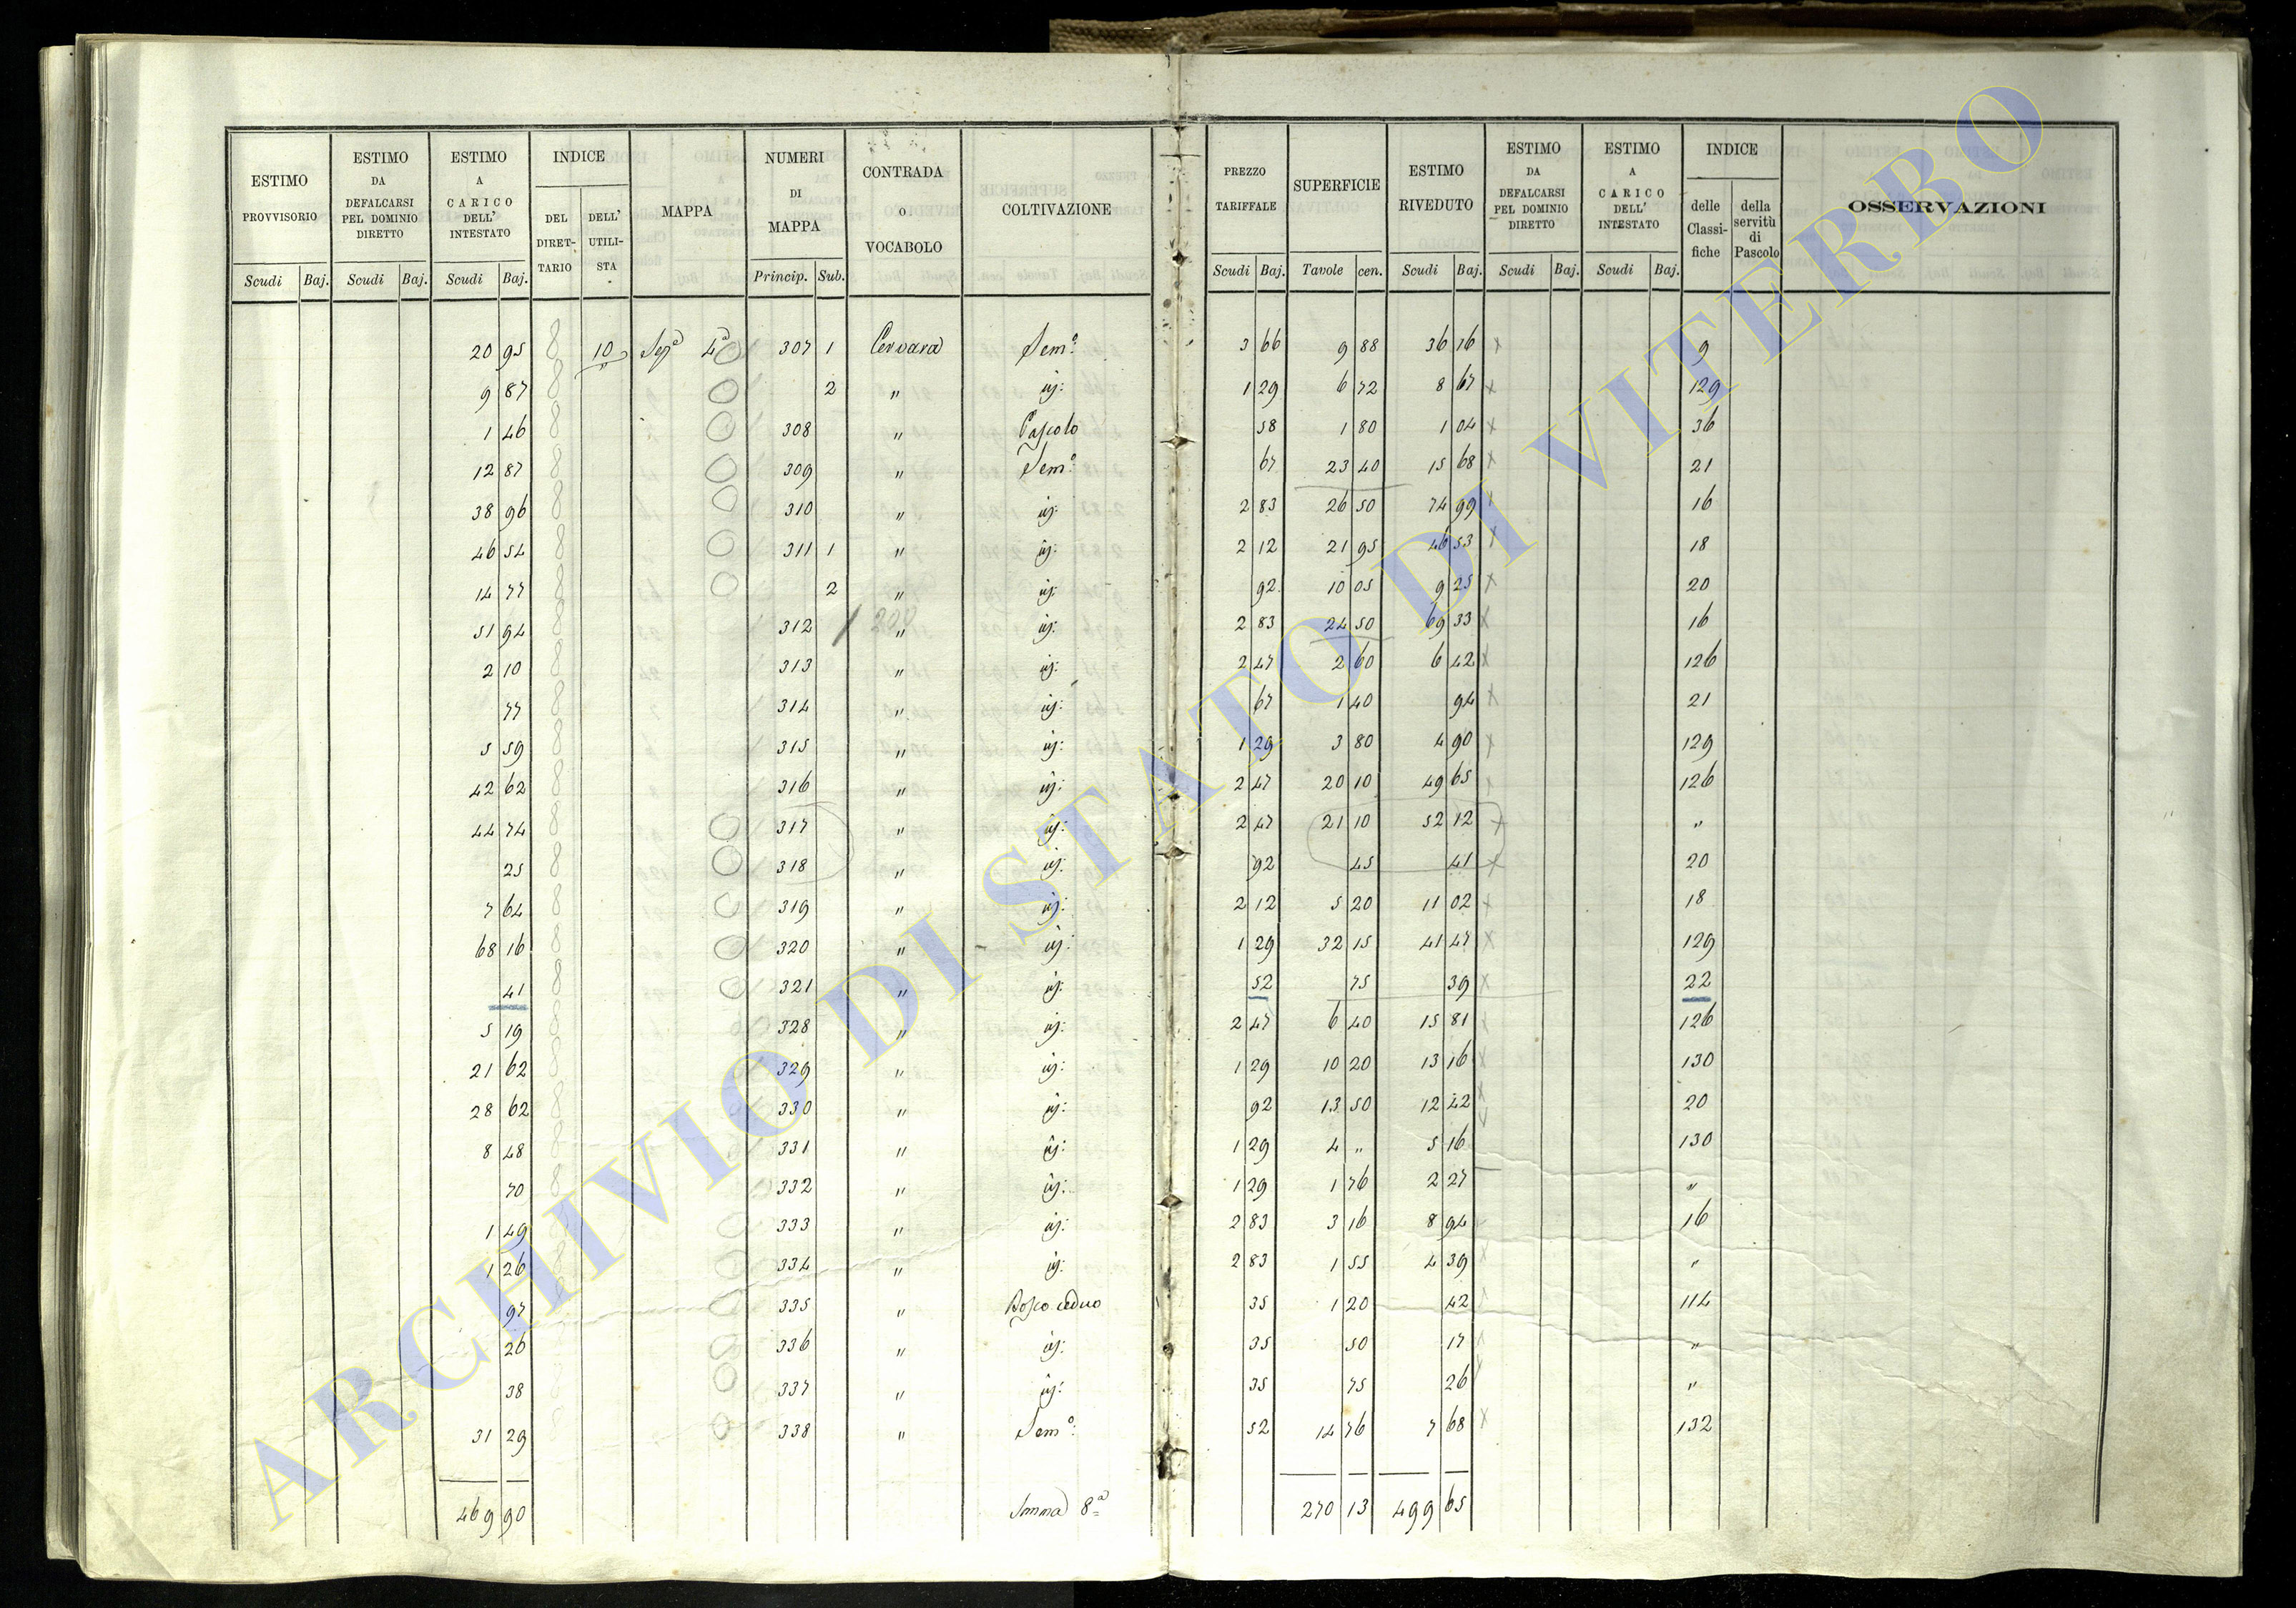 ESTIMO PROVVISORIO
Scudi Baj.
ESTIMO DA DEFALCARSI PEL DOMINIO DIRETTO
Scudi Baj.
ESTIMO A CARICO DELL' INTESTATO
Scudi Baj.
INDICE
DEL DIRET-TARIO
DELL' UTILI-STA
MAPPA
NUMERI DI MAPPA
Princip. Sub.
CONTRADA O VOCABOLO
COLTIVAZIONE
PREZZO TARIFFALE
Scudi Baj.
SUPERFICIE
Tavole cen.
ESTIMO RIVEDUTO
Scudi Baj.
ESTIMO DA DEFALCARSI PEL DOMINIO DIRETTO
Scudi Baj.
ESTIMO A CARICO DELL' INTESTATO
Scudi Baj.
INDICE
delle Classi-fiche
della servitù di Pascolo
OSSERVAZIONI
20 95 8 10 Sezª 4ª 307 1 Cervara Semº: 3 66 9 88 36 16 x 9
9 87 8 2 " iḋ: 1 29 6 72 8 67 x 129
1 46 8 308 " Pascolo 58 1 80 1 04 x 36
12 87 8 309 " Semº: 67 23 40 15 68 x 21
38 96 8 310 " id: 2 83 26 50 74 99 x 16
46 54 8 311 1 " id: 2 12 21 95 46 53 x 18
14 77 8 2 " id: 92 10 05 9 25 x 20
51 94 8 312 " id: 2 83 24 50 69 33 x 16
2 10 8 313 " id: 2 47 2 60 6 42 x 126
77 8 314 " id: 67 1 40 94 x 21
5 59 8 315 " id: 1 29 3 80 4 90 x 129
42 62 8 316 " id: 2 47 20 10 49 65 x 126
44 74 8 317 " id: 2 47 21 10 52 12 x "
25 8 318 " id: 92 45 41 x 20
7 64 8 319 " id: 2 12 5 20 11 02 x 18
68 16 8 320 " id: 1 29 32 15 41 47 x 129
41 8 321 " id: 52 75 39 x 22
5 19 8 328 " id: 2 47 6 40 15 81 x 126
21 62 8 329 " id: 1 29 10 20 13 16 x 130
28 62 8 330 " id: 92 13 50 12 42 x 20
8 48 8 331 " id: 1 29 4 " 5 16 130
70 8 332 " id: 1 29 1 76 2 27 "
1 49 8 333 " id: 2 83 3 16 8 94 16
1 26 8 334 " id: 2 83 1 55 4 39 x "
97 8 335 " Bosco ceduo 35 1 20 42 114
26 336 " id: 35 50 17 "
38 337 " id: 35 75 26 "
31 29 8 338 " Semº: 52 14 76 7 68 x 132
469 90 Somma 8ª 270 13 499 65
ARCHIVIO DI STATO DI VITERBO